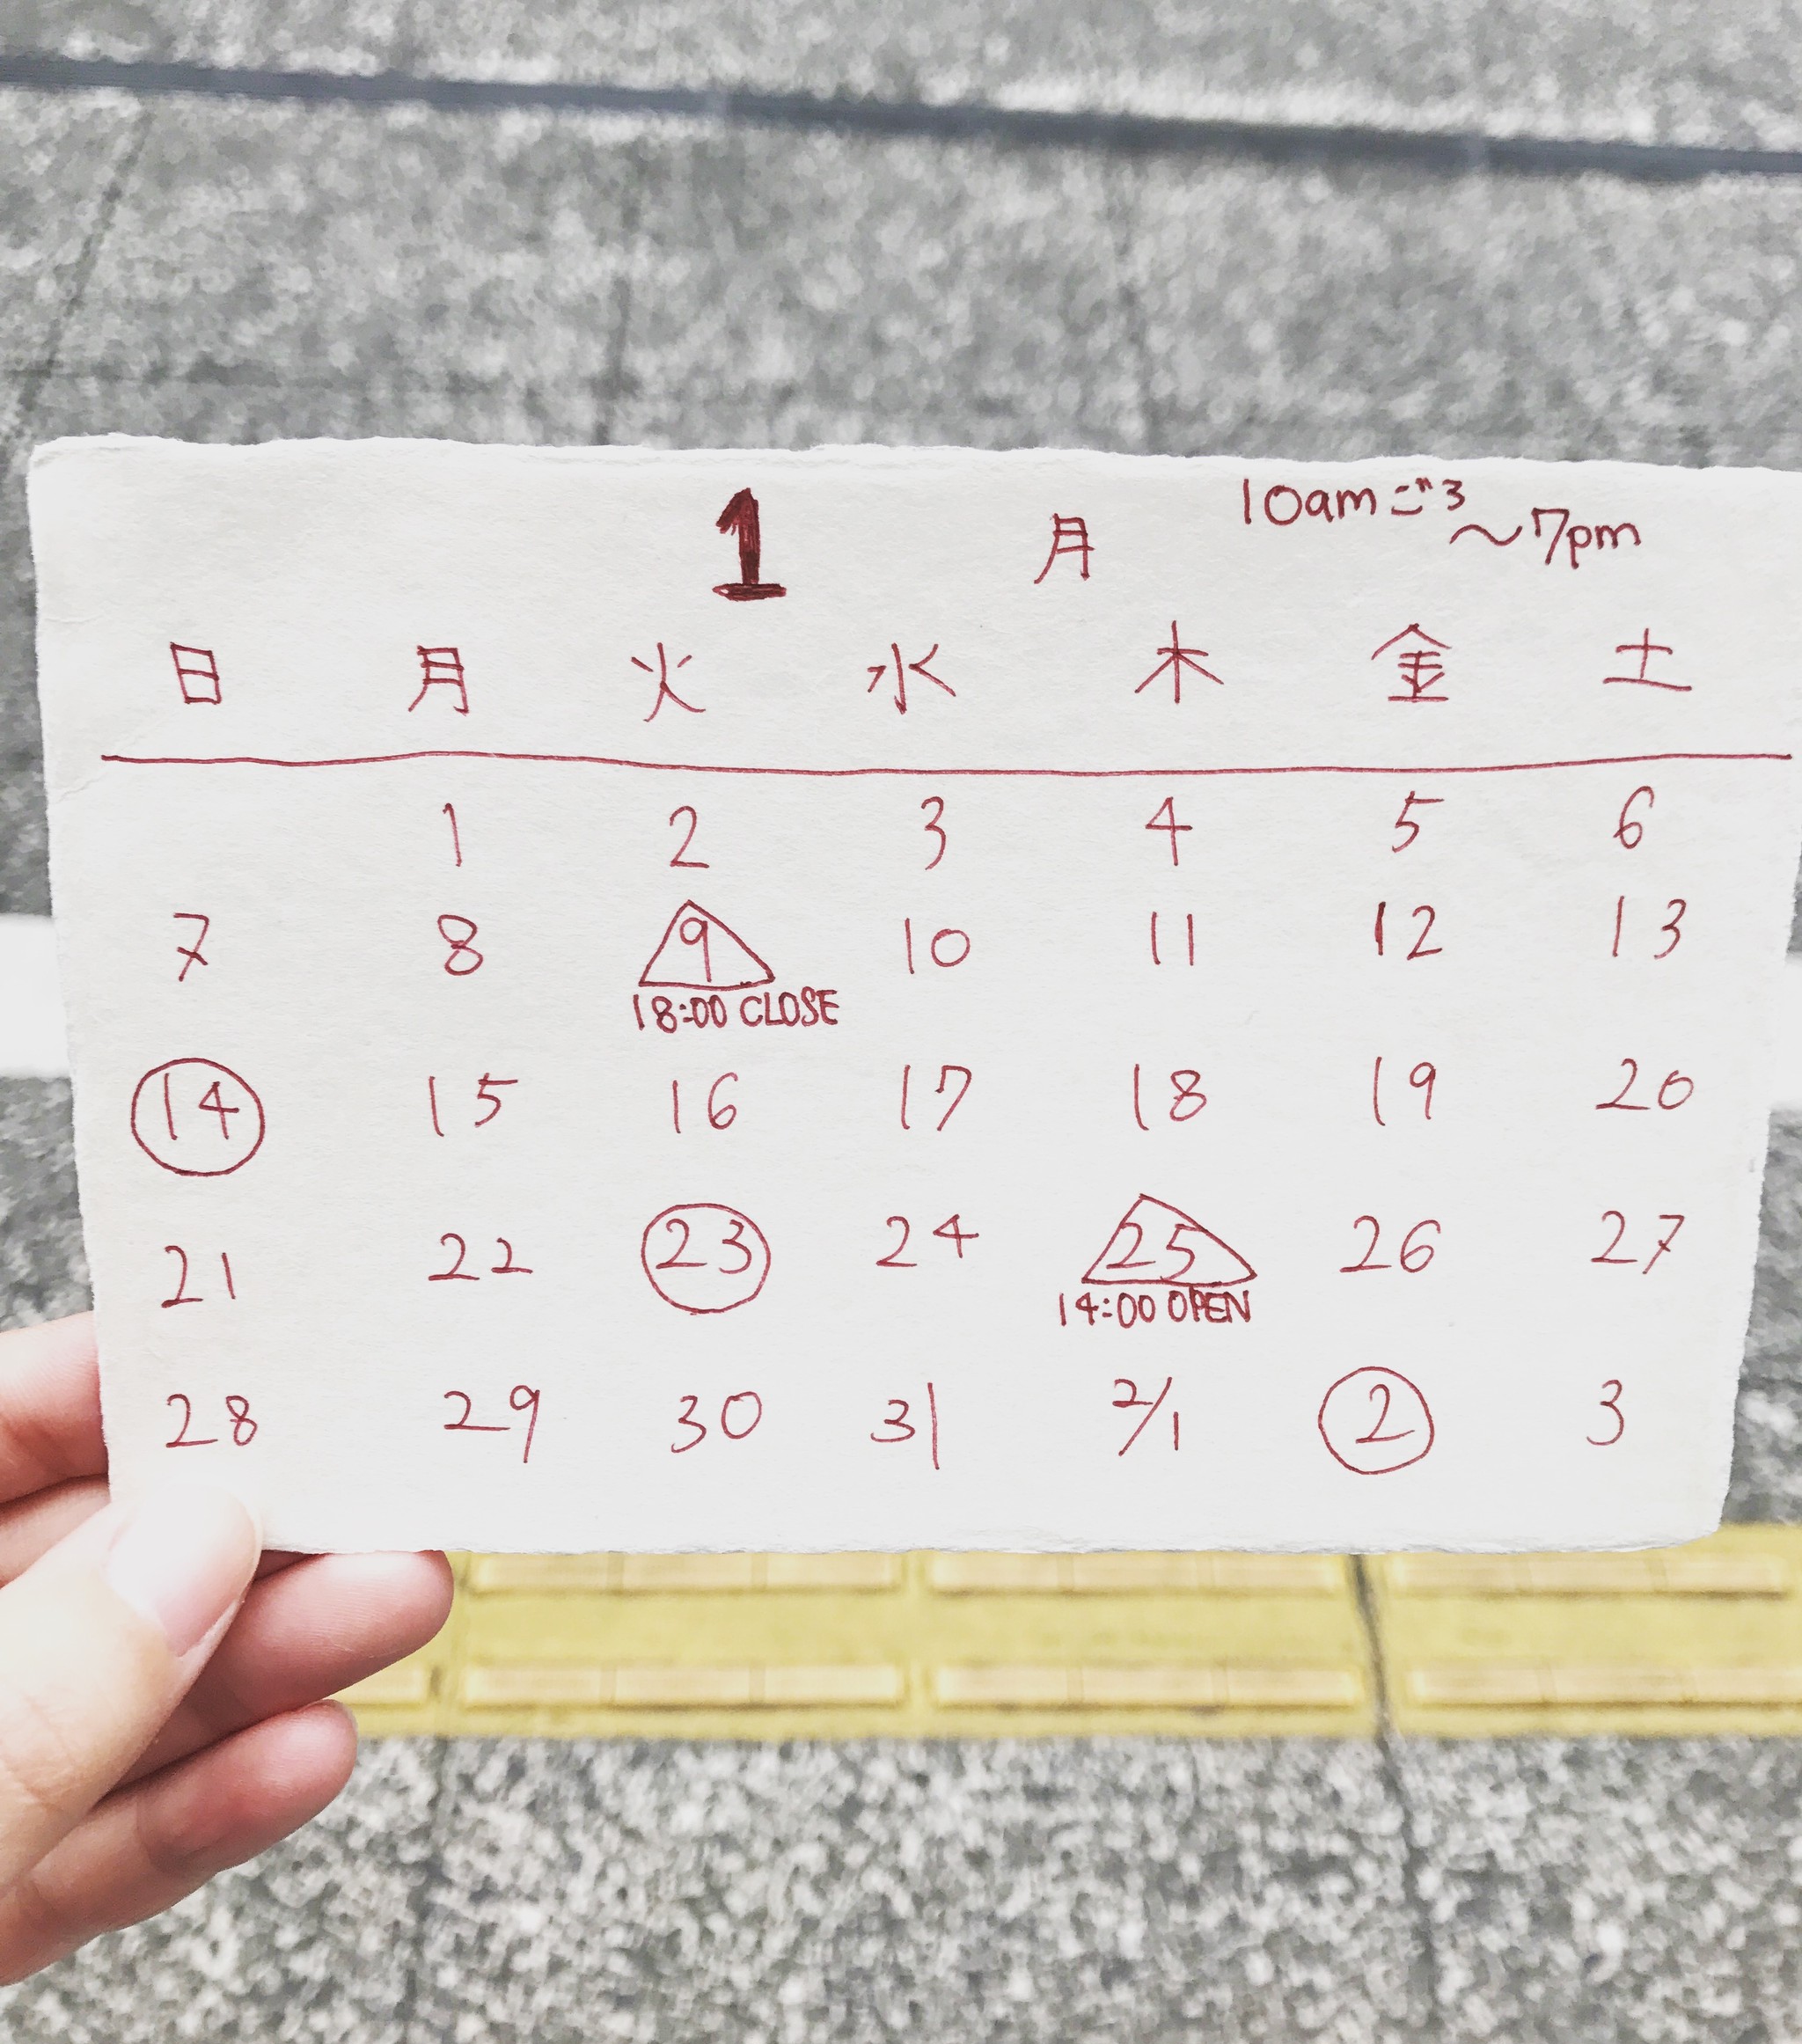 1月 10amごろ
～7pm
日 月 火 水 木 金 土
1 2 3 4 5 6
7 8 9 10 11 12 13
18:00 CLOSE
14 15 16 17 18 19 20
21 22 23 24 25 26 27
14:00 OPEN
28 29 30 31 2/1 2 3